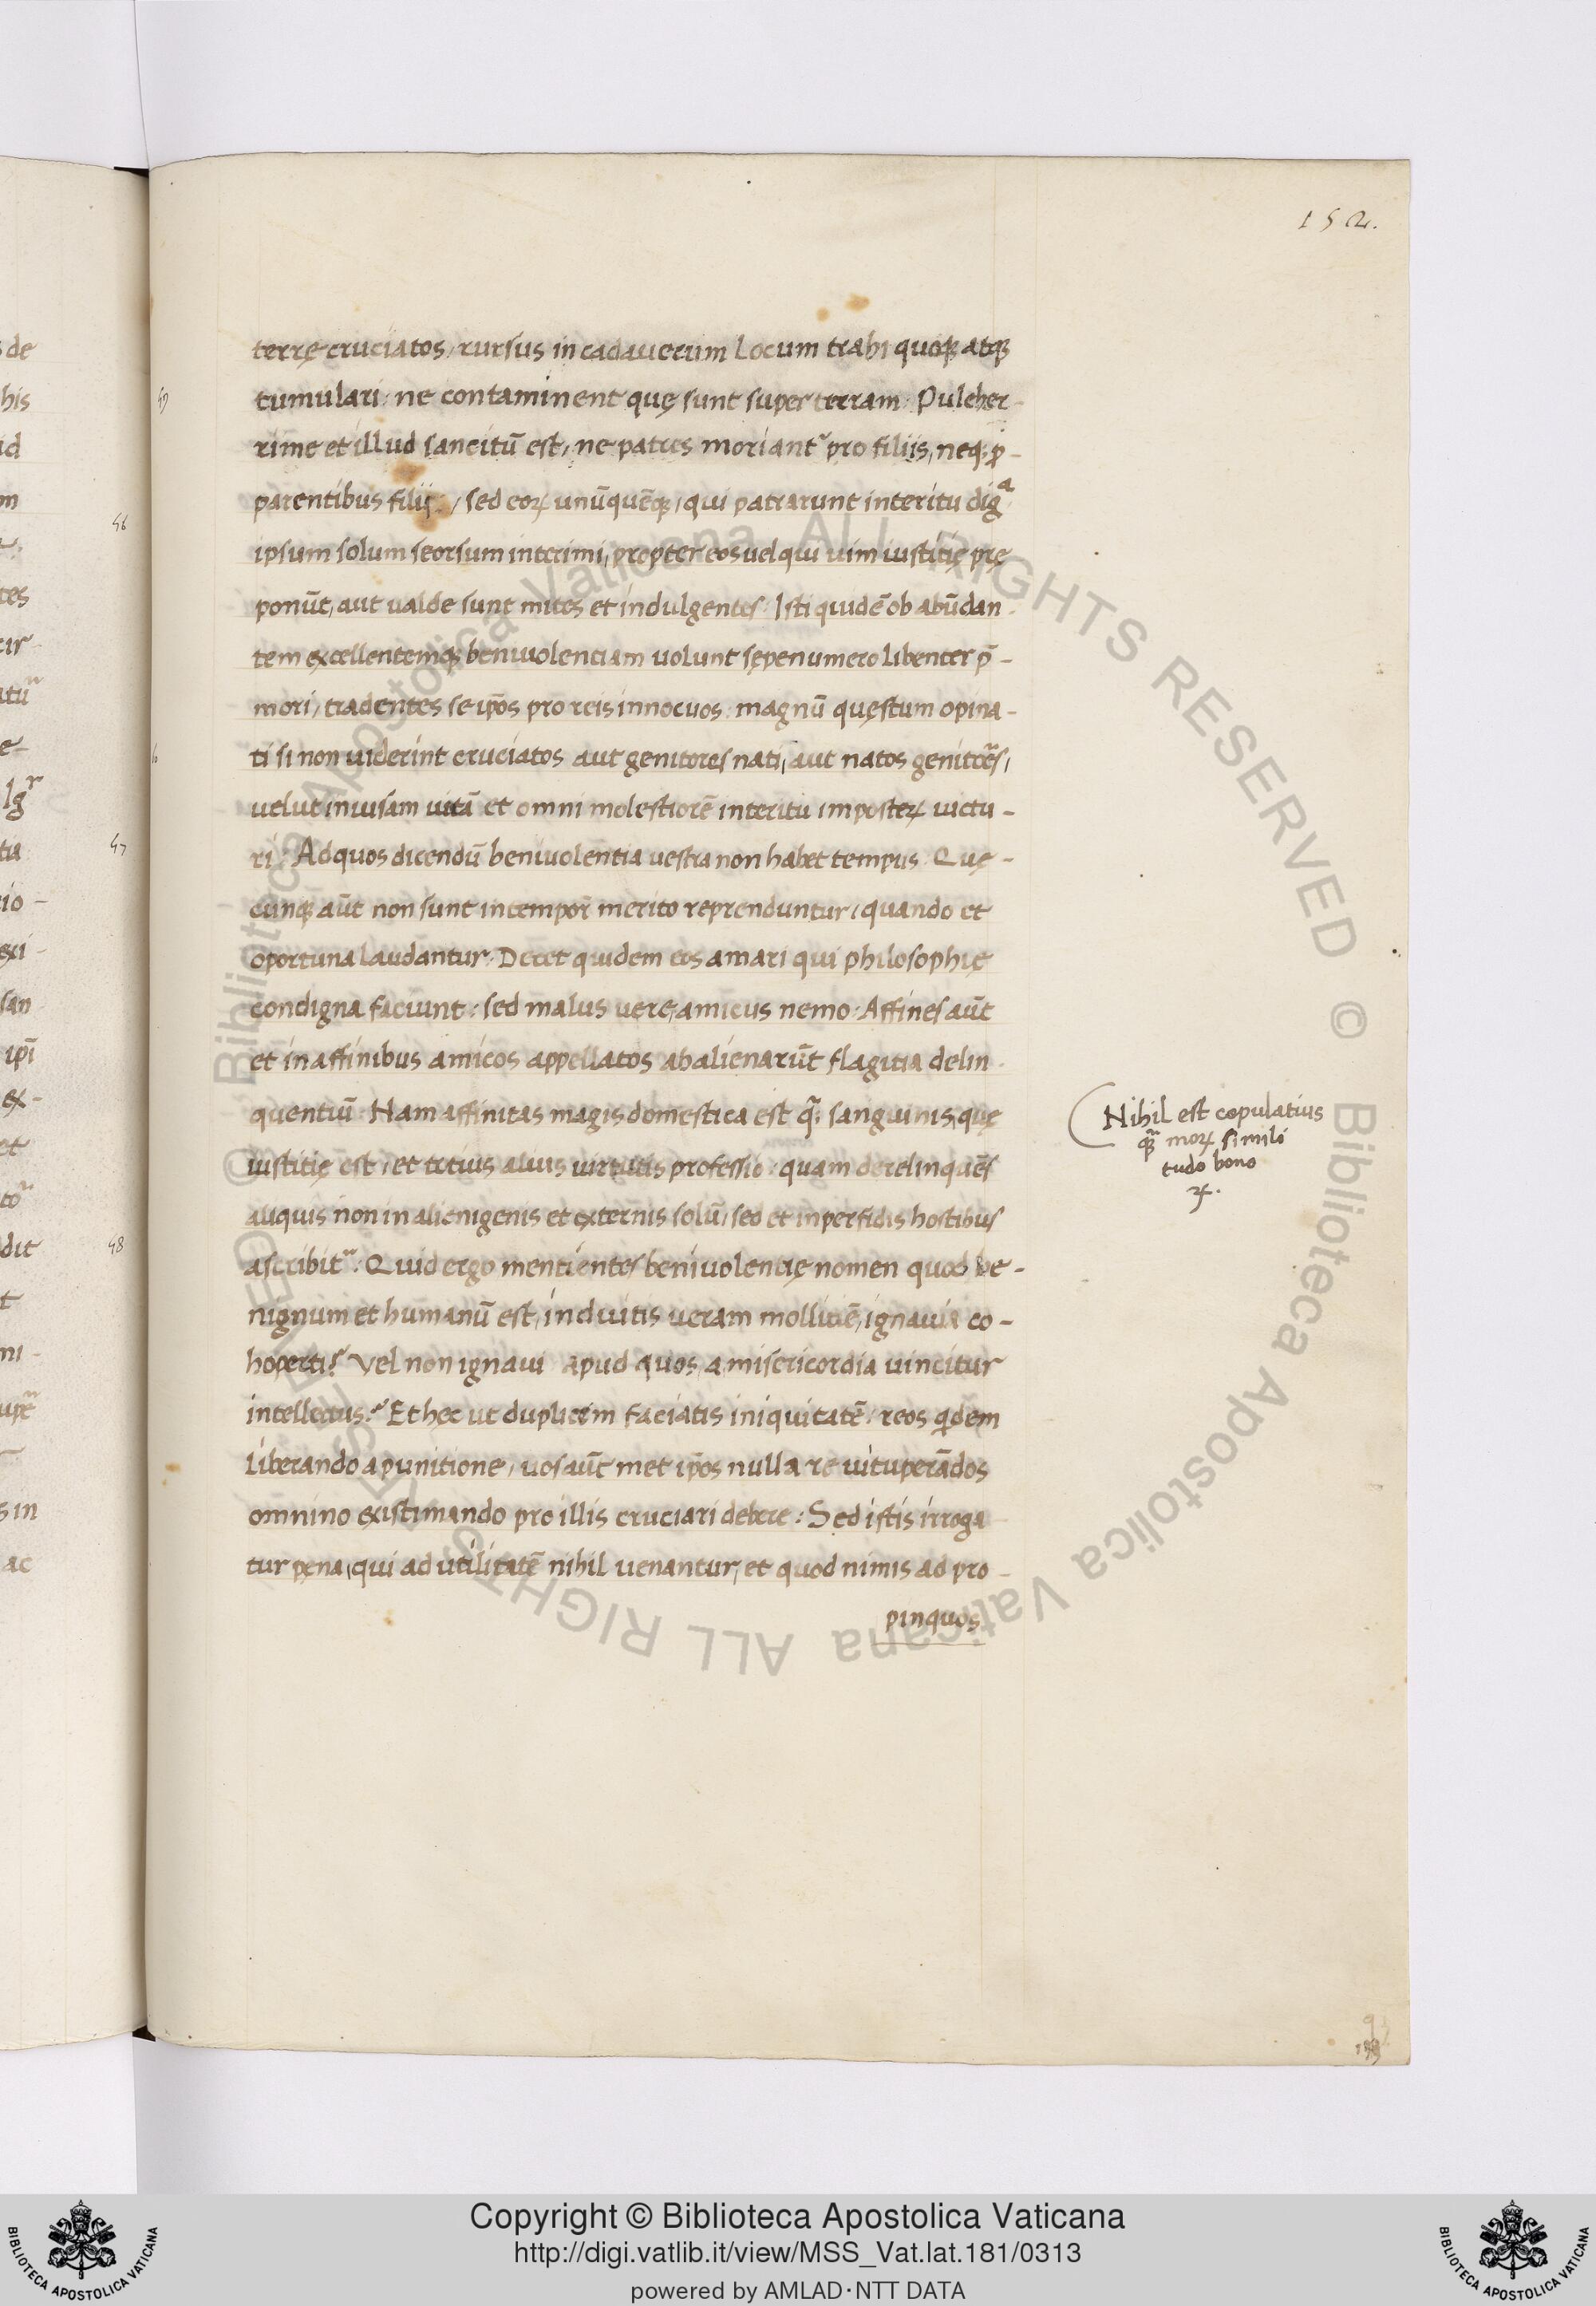 152.
terrę cruciatos, rursus in cadauerum locum trahi quoqꝫ atqꝫ
tumulari: ne contaminent quę sunt super terram. Pulcher-
rime et illud sancitū est, ne patres moriantʳ pro filiis, neqꝫ ꝓ-
parentibus filij: / sed eoꝝ unūquēqꝫ, qui patrarunt interitu digᵃ
ipsum solum seorsum interimi, propter eos uel qui uim iustitię prę
ponūt, aut ualde sunt mites et indulgentes. Isti quidē ob abūdan-
tem excellentemqꝫ beniuolentiam uolunt sępenumero libenter p̄-
mori, tradentes se ip̄os pro reis innocuos: magnū quęstum opina-
ti si non uiderint cruciatos aut genitores nati, aut natos genitōes,
uelut inuisam uitā et omni molestiorē interitu imposteꝝ uictu-
ri. Ad quos dicendū beniuolentia uestra non habet tempus. Quę-
cunqꝫ aūt non sunt in tempor̄ merito reprenduntur, quando et
oportuna laudantur. Decet quidem eos amari qui philosophię
condigna faciunt: sed malus uere, amicus nemo. Affines aūt
et in affinibus amicos appellatos abalienarūt flagitia delin-
quentiū. Nam affinitas magis domestica est q̄; sanguinis, quę
iustitię est, et totius alius uirtutis professio: quam derelinquēs
aliquis non in alienigenis et externis solū, sed et in perfidis hostibus
ascribitʳ. Quid ergo mentientes beniuolentię nomen quod be-
nignum et humanū est, induitis ueram mollitiē, ignauia co-
hoperti? Vel non ignaui apud quos, a misericordia uincitur
intellectus? Et hęc ut duplicem faciatis iniquitatē: reos qͥdem
liberando a punitione, uos aūt met ip̄os nulla re uituperādos
omnino existimando pro illis cruciari debere: Sed istis irroga
tur pęna, qui ad utilitatē nihil uenantur, et quod nimis ad pro-
pinquos
Nihil est copulatius
q̄ moꝝ simili
tudo bono
ꝝ.
Copyright © Biblioteca Apostolica Vaticana
http://digi.vatlib.it/view/MSS_Vat.lat.181/0313
powered by AMLAD·NTT DATA
BIBLIOTECA APOSTOLICA VATICANA
BIBLIOTECA APOSTOLICA VATICANA
© Biblioteca Apostolica Vaticana ALL RIGHTS RESERVED
© Biblioteca Apostolica Vaticana ALL RIGHTS RESERVED